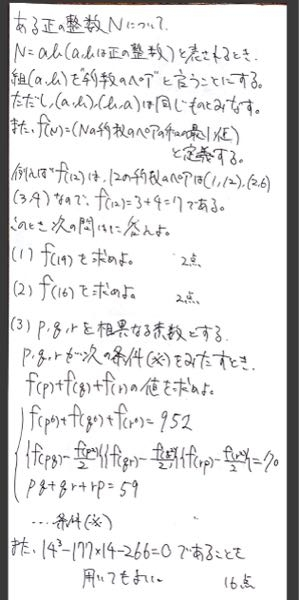 ある正の整数Nについて、
N=ab(a,bは正の整数)と表されるとき、
組(a,b)を"約数のペア"と言うことにする。
ただし、(a,b),(b,a)は同じものとみなす。
また、f(N)=(Nの約数のペアの和の最小値)
と定義する。
例えばf(12)は、12の約数のペアは(1,12),(2,6)
(3,4)なので、f(12)=3+4=7である。
このとき次の問いに答えよ。
(1) f(19)を求めよ。 2点
(2) f(16)を求めよ。 2点
(3) p,q,rを相異なる素数とする。
p,q,rが次の条件(※)をみたすとき、
f(p)+f(q)+f(r)の値を求めよ。
f(p⁶)+f(q⁶)+f(r⁶)=952
{f(pq)-f(p²)/2}{f(qr)-f(q²)/2}{f(rp)-f(r²)/2}=70
pq+qr+rp=59
…条件(※)
また、14³-177×14-266=0であることを
用いてもよい。 16点